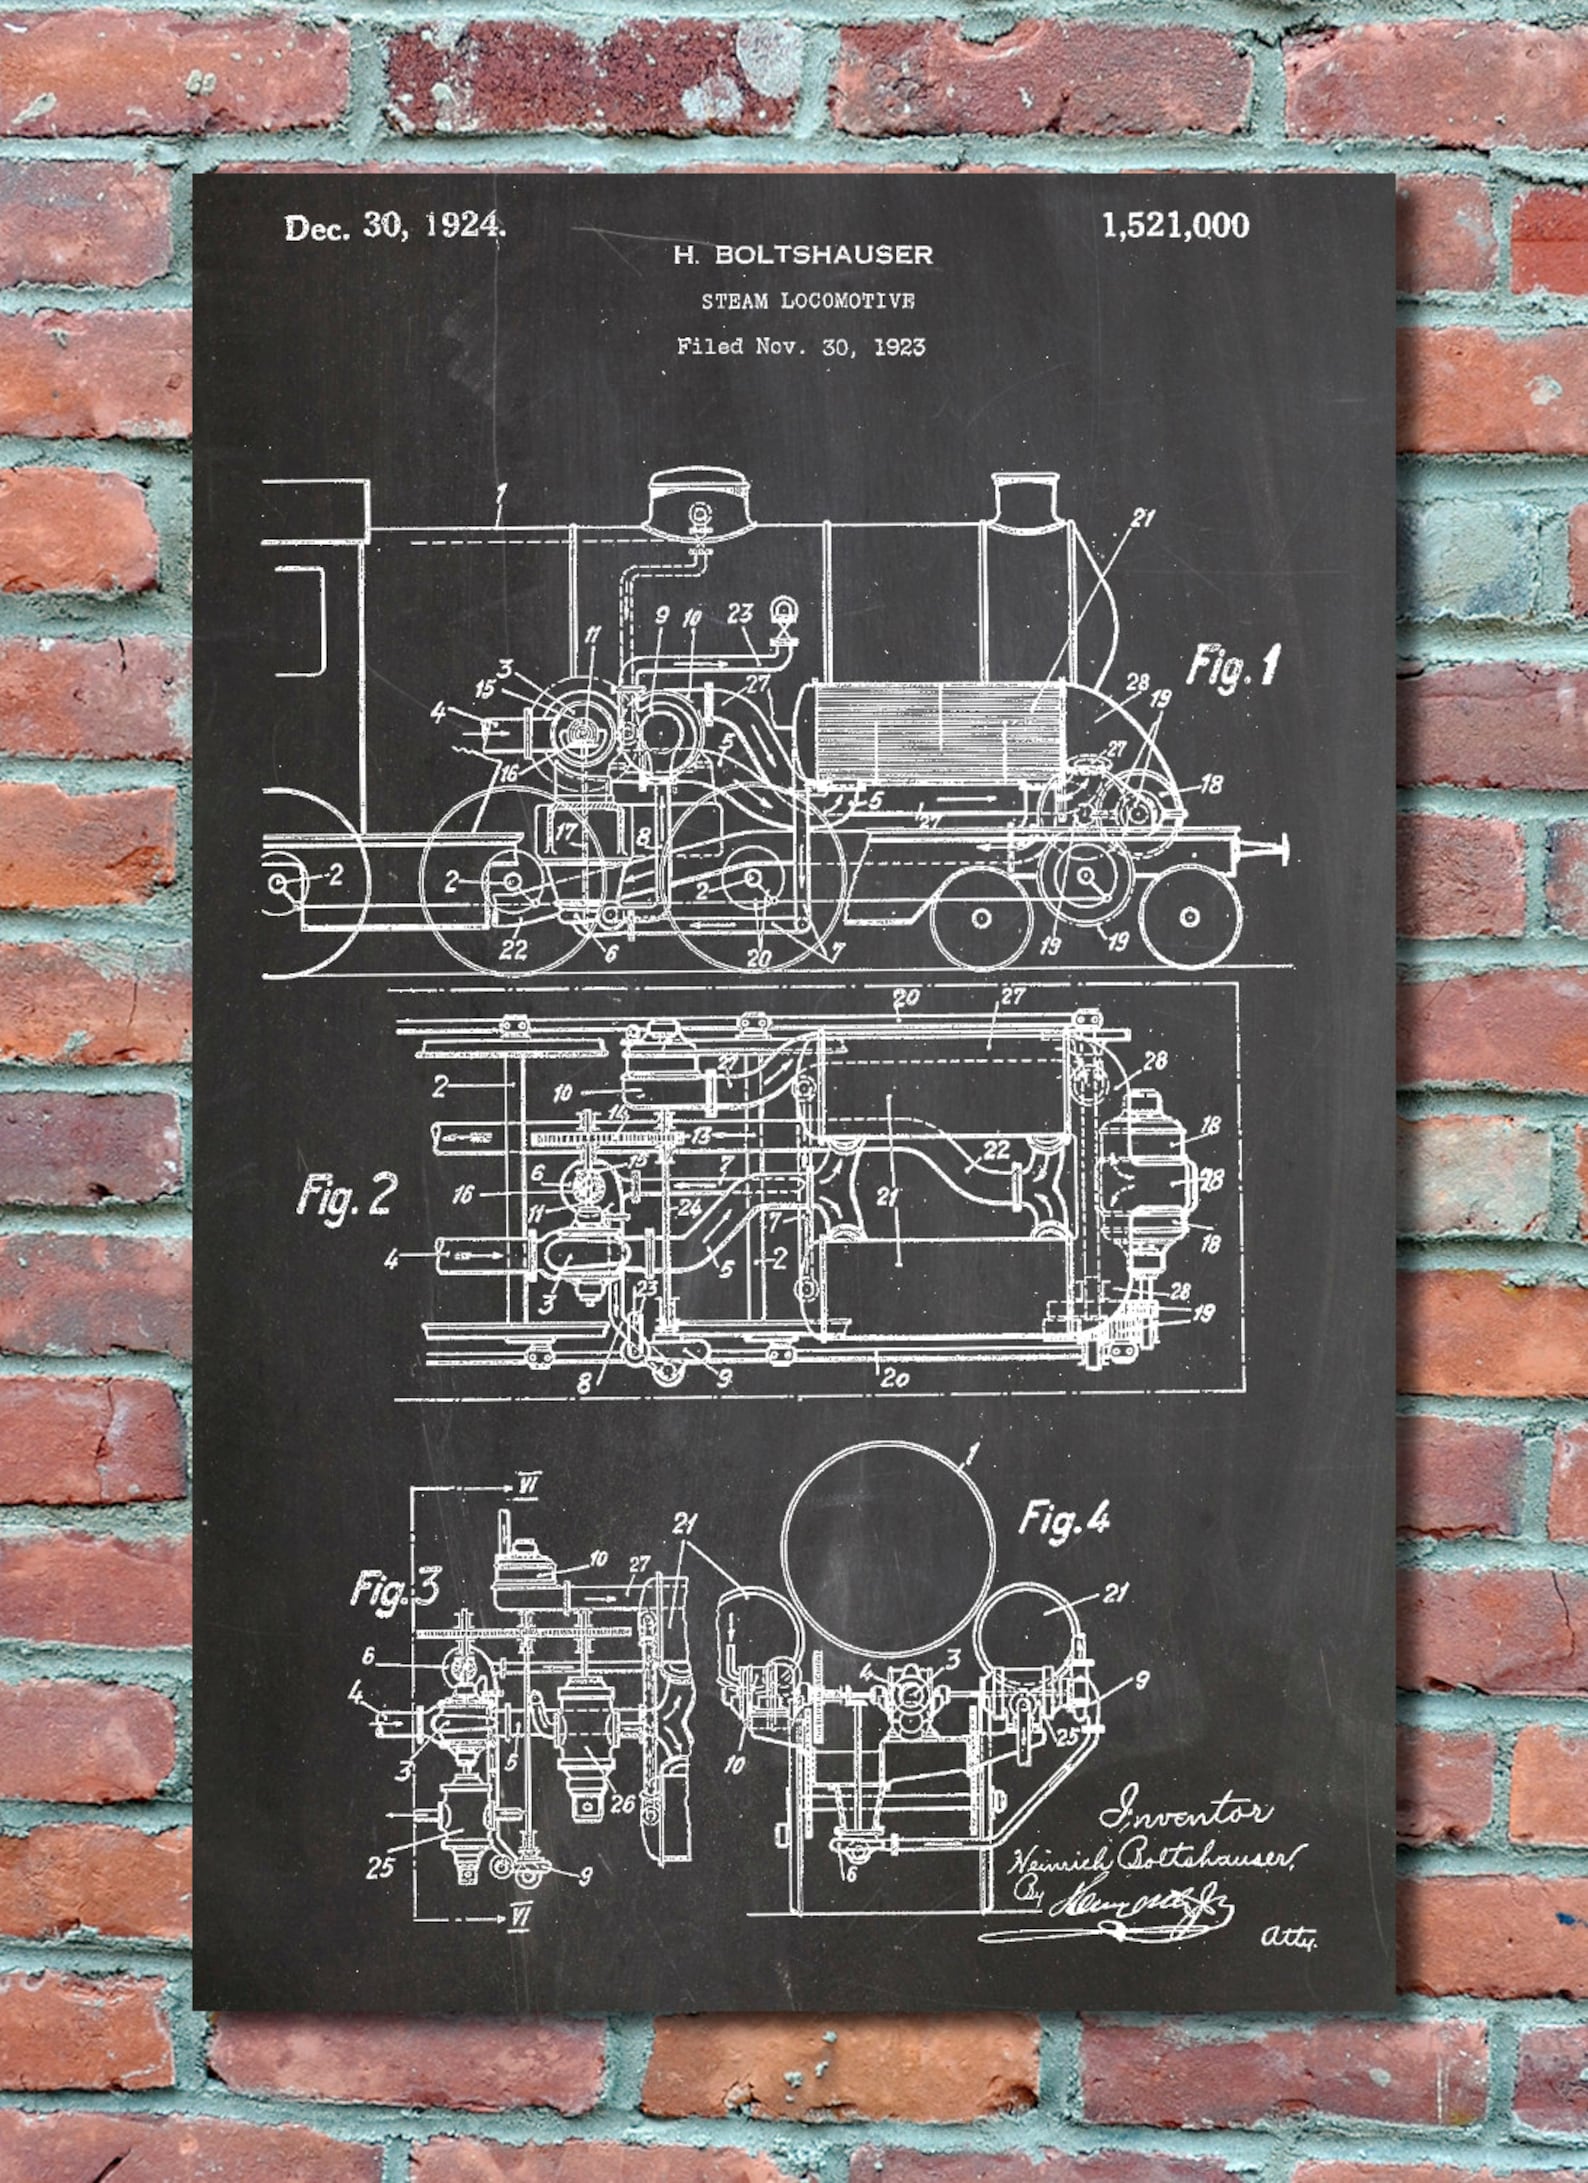 Dec. 30, 1924.
1,521,000
H. BOLTSHAUSER
STEAM LOCOMOTIVE
Filed Nov. 30, 1923
Fig. 1
1
21
9 10 23
11
3
15
4
27
28
19
5
27
16
18
5
27
17
8
2
2
2
22
6
20
7
19
19
Fig. 2
20
27
2
10
27
28
14
13
18
6
15
7
22
16
11
24
21
28
4
7
5
2
18
3
23
28
19
8
9
20
Fig. 3
VI
10
27
21
6
4
3
5
26
25
9
VI
Fig. 4
1
21
4
3
9
10
25
6
Inventor
Heinrich Boltshauser,
By
Atty.